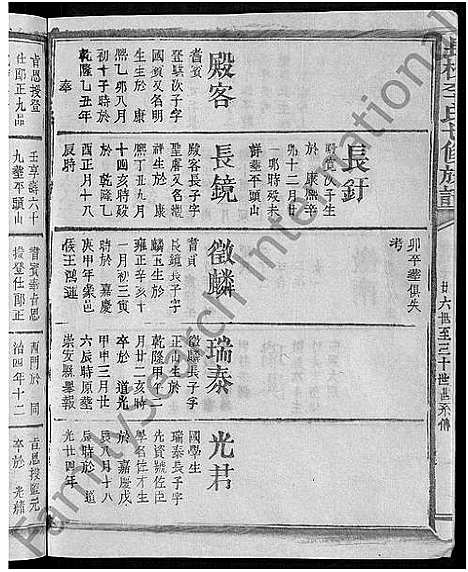 廿六世至三十世世系傳
殿客
耆賓
登騏次子字
國賓又名明
生生於 康
熙乙卯八月
初十子時於
乾隆乙丑年
奉
長鏡
殿客長子字
聖瞻又名
祥生於 康
熙丁丑九月
十四亥時歿
於 乾隆乙
酉正月十八
辰時
長釪
殿賓次子生
於 康熙辛
卯十二月廿
一卯時歿未
詳葬平頭山
卯平葬俱失
考
徵麟
耆賓
長鏡長子字
麟玉生於
雍正辛亥十
一月初三寅
時於 嘉慶
庚申年蒙邑
侯王鴻運
瑞泰
徵麟長子字
正山生於
乾隆甲午
月廿二亥時
卒於 道光
甲申三月廿
六辰時原葬
崇安縣舉報
光君
國學生
瑞泰長子字
先資號佐臣
學名佐才生
於 嘉慶戊
辰八月十八
辰時於 道
光廿四年
旨恩授登
仕郎正九品
壬享壽六十
九葬平頭山
耆賓奉旨恩
授登仕郎正
酉門於 同
治四年十二
旨恩授監元
卒於 光緒
FamilySearch International